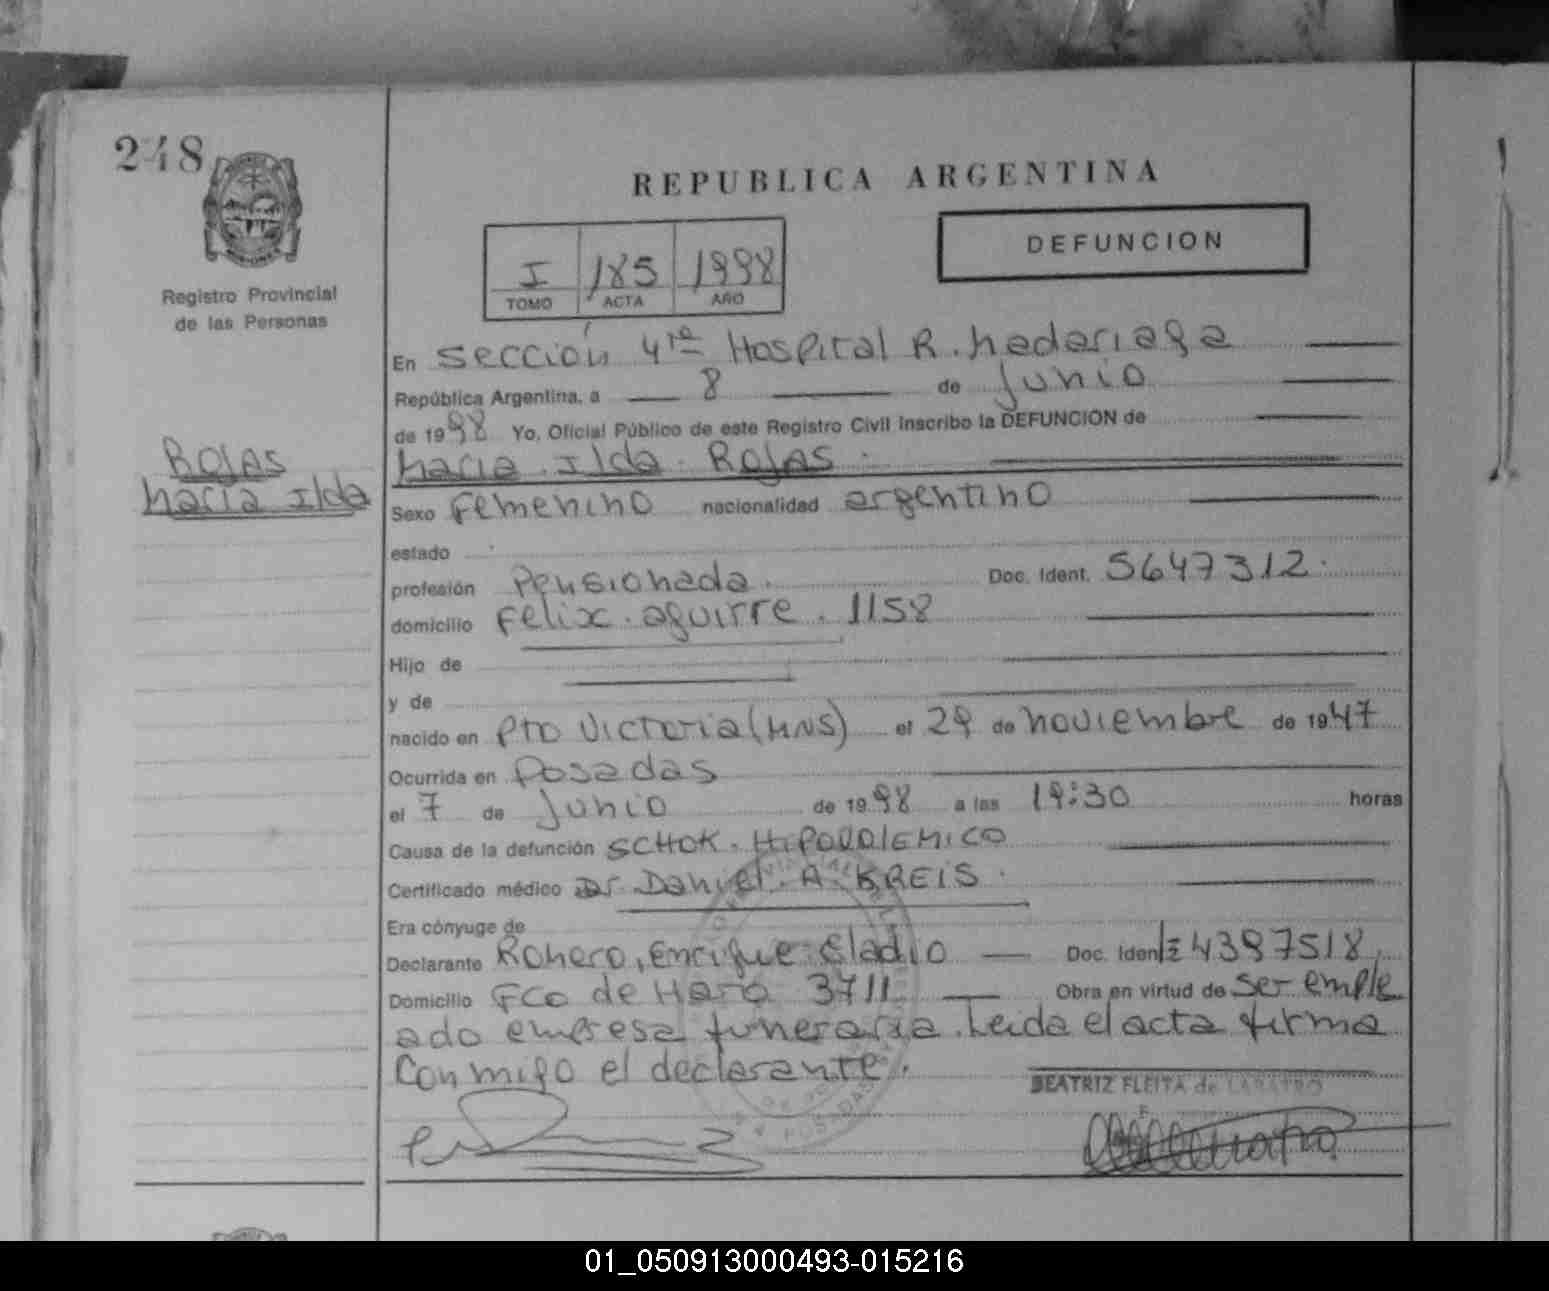 248
REPUBLICA ARGENTINA
DEFUNCION
I 185 1998
TOMO ACTA AÑO
Registro Provincial
de las Personas
Rojas
Maria Ilda
En sección 4ta Hospital R. Madariaga
República Argentina, a 8 de Junio
de 1998 Yo, Oficial Público de este Registro Civil inscribo la DEFUNCION de
Maria Ilda Rojas
Sexo Femenino nacionalidad argentino
estado
profesión Pensionada. Doc. Ident. 5647312.
domicilio Felix aguirre. 1158
Hijo de
y de
nacido en Pto Victoria (MNS) el 29 de noviembre de 1947
Ocurrida en Posadas
el 7 de Junio de 1998 a las 19:30 horas
Causa de la defunción SCHOK. HIPOVOLEMICO
Certificado médico Dr. Daniel. A. KREIS.
Era cónyuge de
Declarante Romero, Enrique Eladio — Doc. Ident 4397518
Domicilio Fco de Haro 3711 — Obra en virtud de ser emple
ado empresa funeraria. Leida el acta firma
Conmigo el declarante.
BEATRIZ FLEITA de
POSADAS
01_050913000493-015216